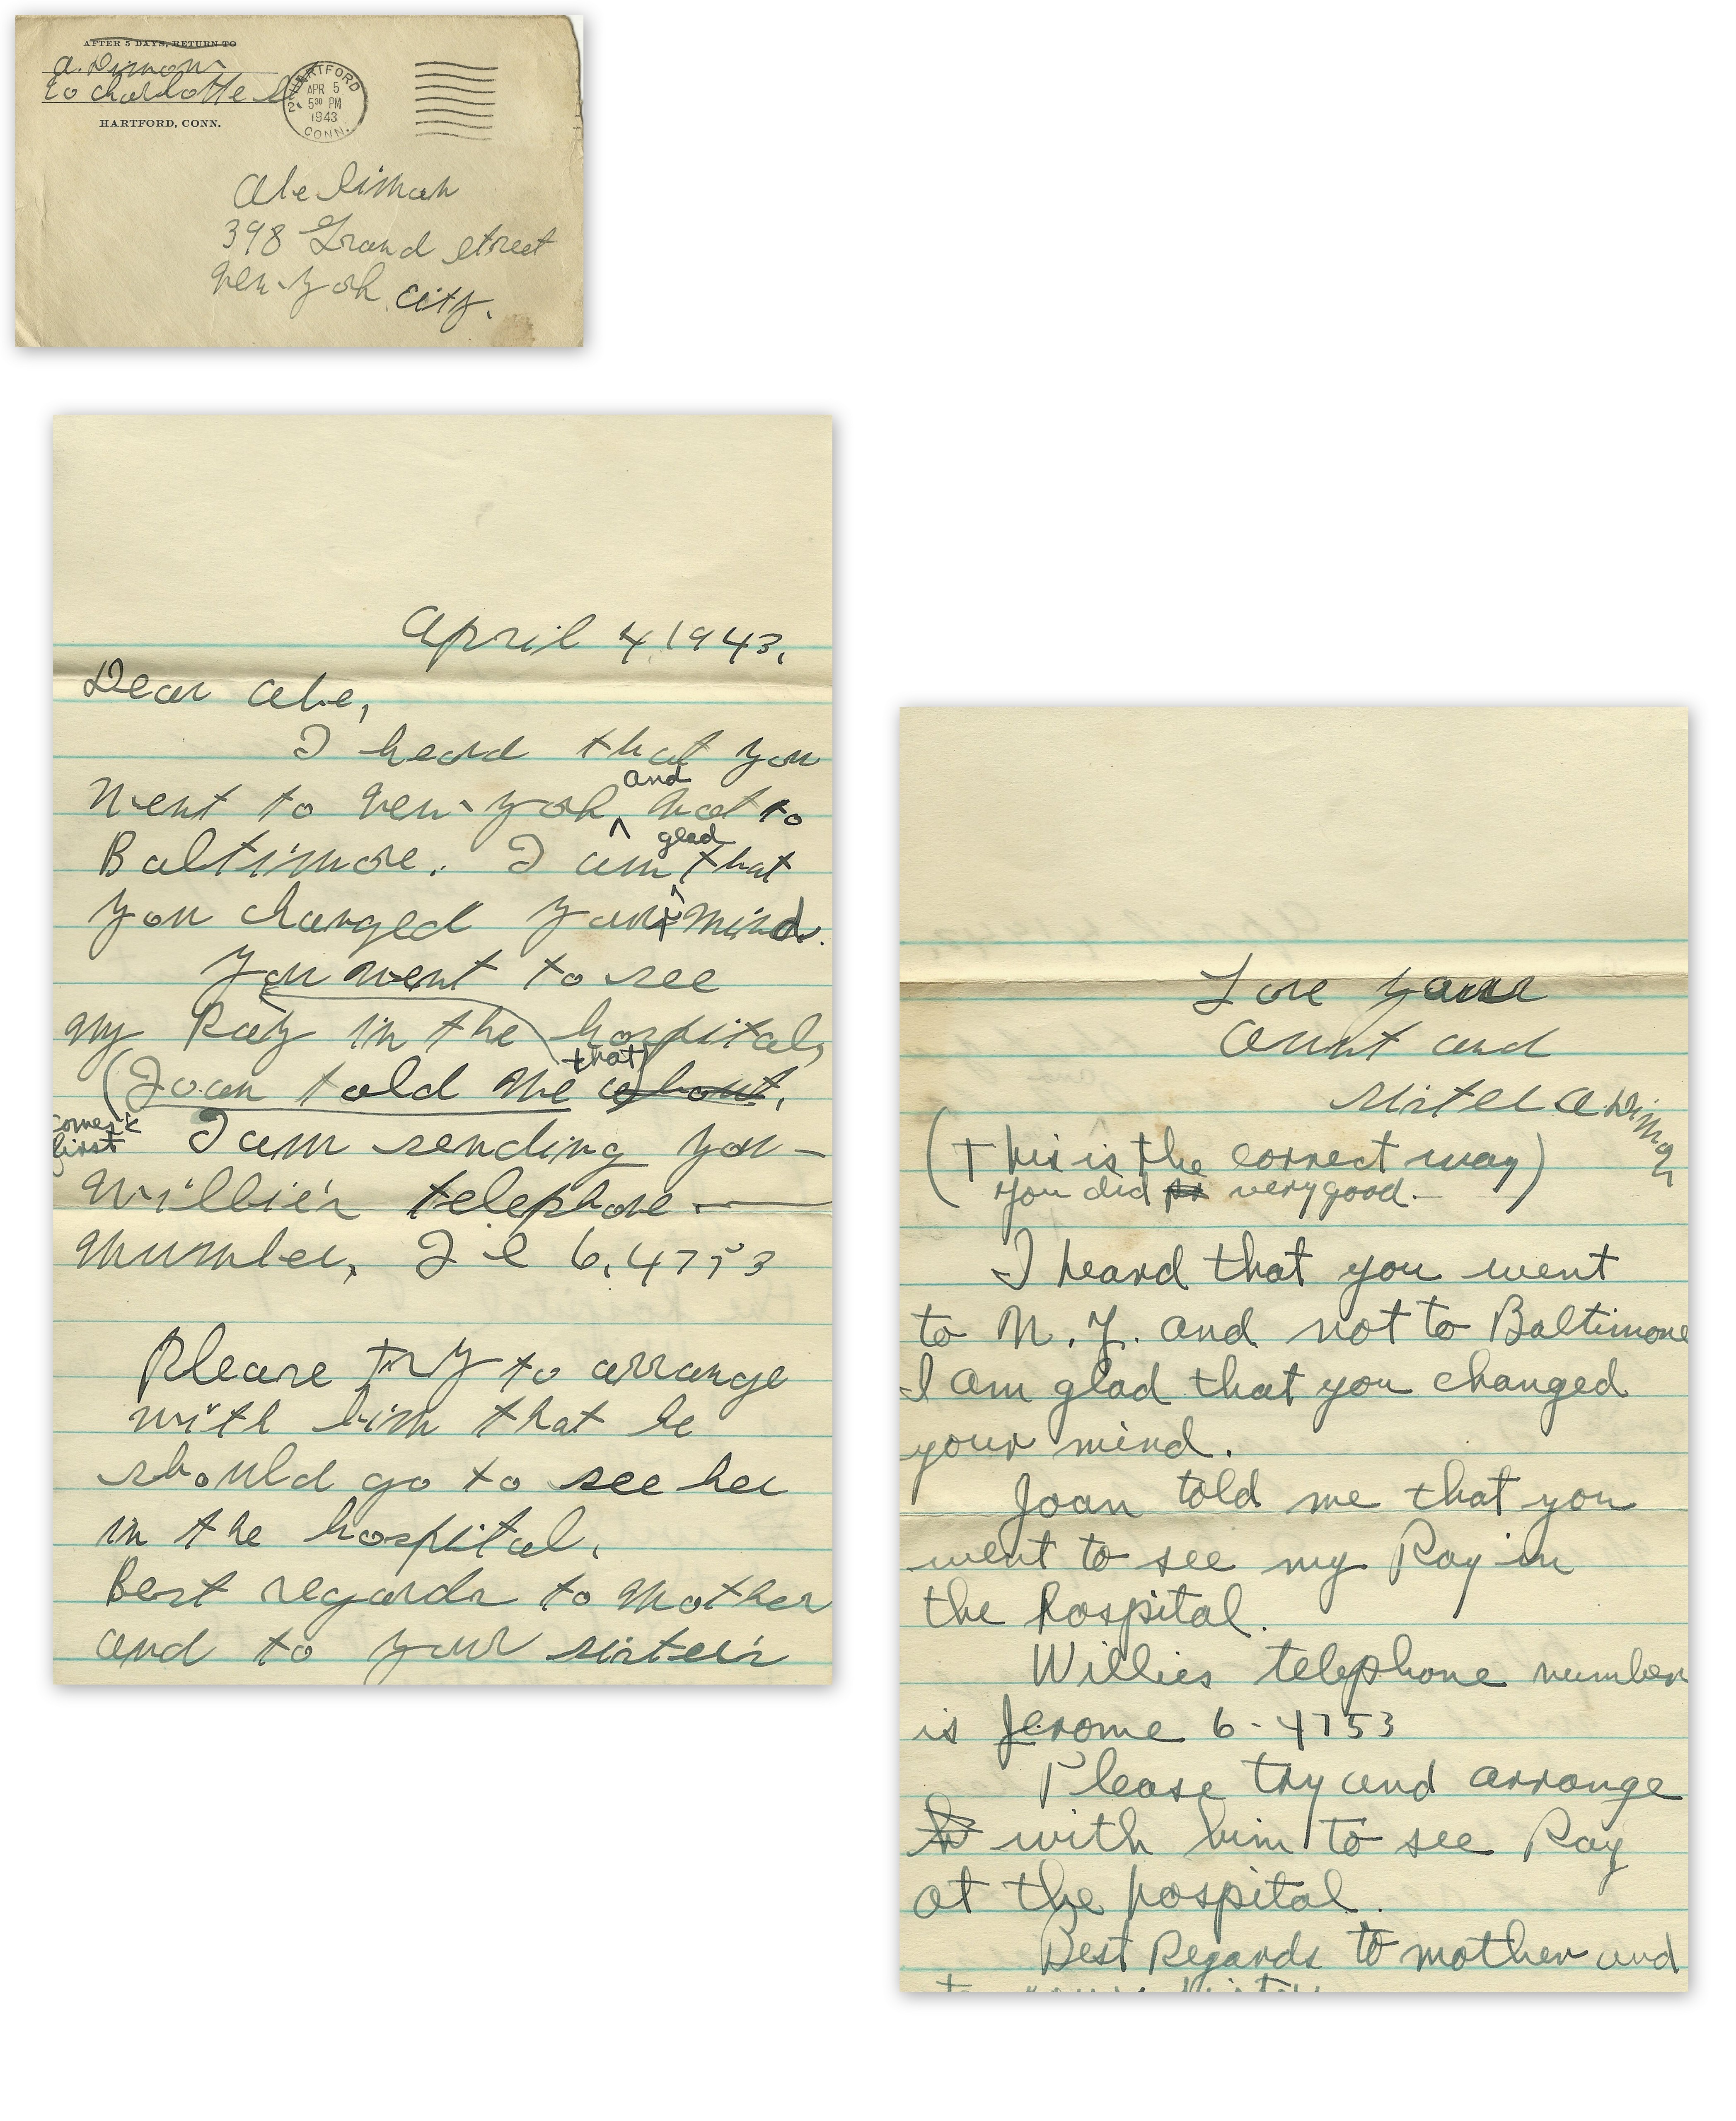 AFTER 5 DAYS, RETURN TO
A. Dimon
℅ Charlotte
HARTFORD, CONN.
HARTFORD
APR 5
5 30 PM
1943
CONN.
Abe Simon
398 Grand street
New-York City.
April 4, 1943.
Dear Abe,
I heard that you
and
went to New-York not to
glad
Baltimore. I am that
you changed your mind.
You went to see
my Ray in the hospital,
that)
(Joan told me about.
comes
first
I am sending you
Willie's telephone
Number, Je 6.4753
Please try to arrange
with him that he
should go to see her
in the hospital.
Best regards to Mother
and to your sister's
Love your
Aunt and
sister A. Dimon
(This is the correct way)
You did very good.
I heard that you went
to N. Y. and not to Baltimore
I am glad that you changed
your mind.
Joan told me that you
went to see my Ray in
the hospital.
Willies telephone number
is Jerome 6-4753
Please try and arrange
with him to see Ray
at the hospital.
Best Regards to mother and